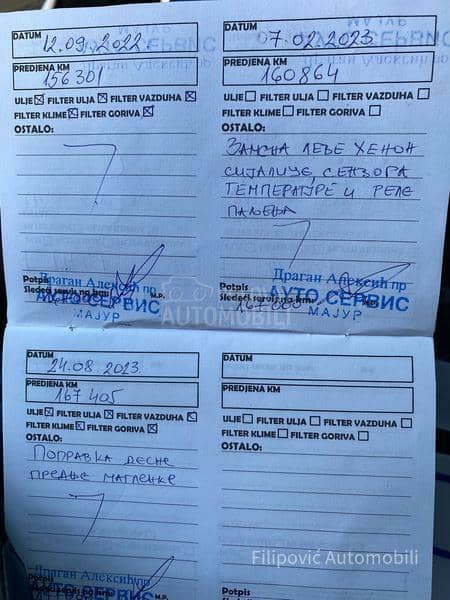 DATUM 12.09.2022
PREDJENA KM 156301
ULJE☒ FILTER ULJA ☒ FILTER VAZDUHA ☒
FILTER KLIME ☒ FILTER GORIVA ☒
OSTALO:
Potpis
Sledeći servis na km:
Драган Алексић пр
АУТО СЕРВИС
МАЈУР
М.Р.
DATUM 07.02.2023
PREDJENA KM 160864
ULJE☐ FILTER ULJA ☐ FILTER VAZDUHA ☐
FILTER KLIME ☐ FILTER GORIVA ☐
OSTALO:
ЗАМЕНА ЛЕВЕ ХЕНОН
СИЈАЛИЦЕ, СЕНЗОРА
ТЕМПЕРАТУРЕ И РЕЛЕ
ПАЉЕЊА
Potpis
Sledeći servis na km:
Драган Алексић пр
АУТО СЕРВИС
МАЈУР
DATUM 24.08.2023
PREDJENA KM 167405
ULJE☒ FILTER ULJA ☒ FILTER VAZDUHA ☒
FILTER KLIME ☒ FILTER GORIVA ☒
OSTALO:
ПОПРАВКА ДЕСНЕ
ПРЕДЊЕ МАГЛЕНКЕ
Драган Алексић пр
Potpis
DATUM
PREDJENA KM
ULJE☐ FILTER ULJA ☐ FILTER VAZDUHA ☐
FILTER KLIME ☐ FILTER GORIVA ☐
OSTALO:
Potpis
AUTOMOBILI
Filipović Automobili